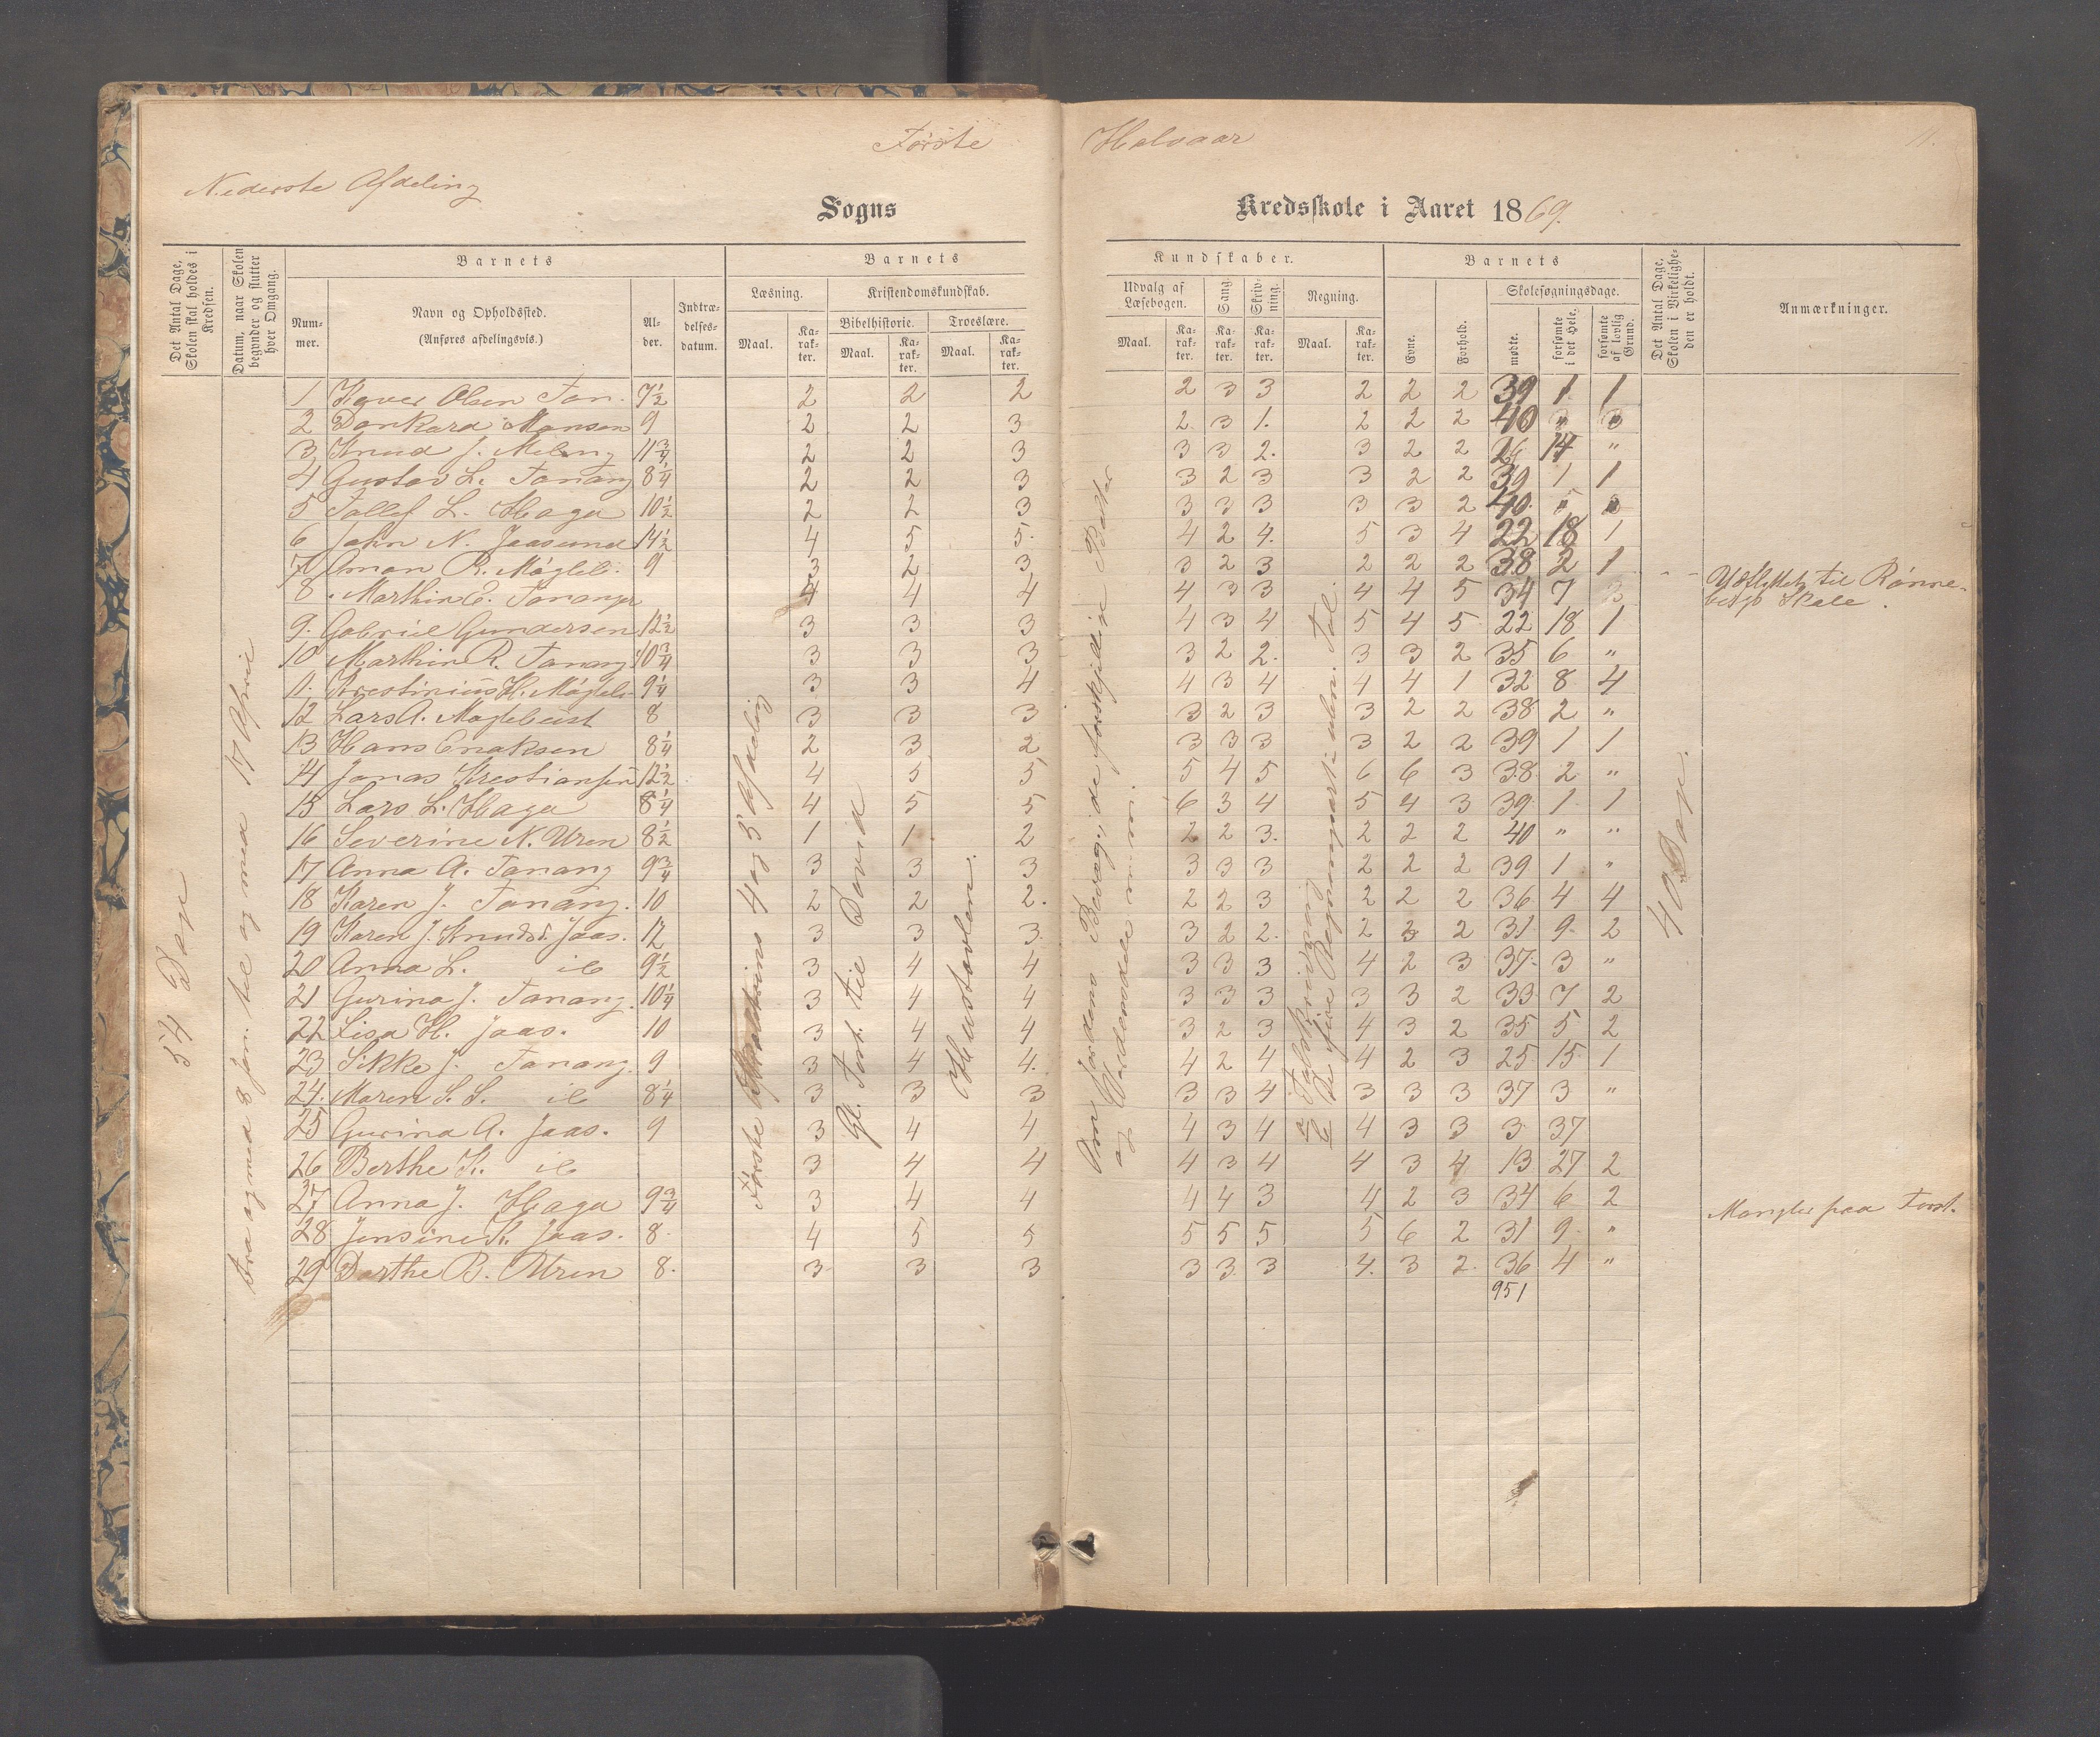 Første Halvaar
11.
Nederste Afdeling
Sogns Kredsskole i Aaret 1869.
Det Antal Dage, Skolen skal holdes i Kredsen.
Datum, naar Skolen begynder og slutter hver Omgang.
Barnets
Barnets Kundskaber.
Barnets
Det Antal Dage, Skolen i Virkelighe-den er holdt.
Anmærkninger.
Num-mer.
Navn og Opholdssted.
(Anføres afdelingsvis.)
Al-der.
Indtræ-delses-datum.
Læsning.
Kristendomskundskab.
Bibelhistorie.
Troeslære.
Maal.
Ka-rak-ter.
Maal.
Ka-rak-ter.
Maal.
Ka-rak-ter.
Udvalg af Læsebogen.
Sang.
Skriv-ning.
Regning.
Maal.
Ka-rak-ter.
Ka-rak-ter.
Ka-rak-ter.
Maal.
Ka-rak-ter.
Evne.
Forhold.
Skolesøgningsdage.
mødte.
forsømte i det Hele.
forsømte af lovlig Grund.
54 Dage
fra og med 8 Jan. til og med 17 April
4 og 5 Afdeling
Gl. Test. til David
Hustavlen.
40 Dage.
1 Olsen Tan. 7½ 2 2 2 2 3 3 2 2 2 39 1 1
2 Dankard Monsen 9 2 2 3 2 3 1. 2 2 2 40 "
3 Knud J. Meling 11¾ 2 2 3 3 3 2. 3 2 2 26 14 "
4 Gustav L. Tanang 8¼ 2 2 3 3 2 3 3 2 2 39 1 1
5 Tollef L. Haga 10½ 2 2 3 3 3 3 3 3 2 40 "
6. John N. Jaasund 14½ 4 5 5. 4 2 4. 5 3 4 22 18 1
7 Aman R. Møgleb. 9 3 2 3 3 2 3 2 2 2 38 2 1
8. Marthin E. Tananger 4 4 4 4 3 3 4 4 5 34 7 Udflyttet til Rønne-
bergs Skole.
9. Gabriel Gundersen 12½ 3 3 3 4 3 4 5 4 5 22 18 1
10 Marthin R. Tanang 10¾ 3 3 3 3 2 2. 3 3 2 35 6 "
11. Krestinius H. Møgleb. 9¼ 3 3 4 4 3 4 4 4 1 32 8 4
12 Lars A. Møglebust 8 3 3 3 3 2 3 3 2 2 38 2 "
13 Hans Enaksen 8¼ 2 3 2 3 3 3 3 2 2 39 1 1
14 Jonas Krestiansen 12½ 4 5 5 5 4 5 6 6 3 38 2 "
15 Lars L. Haga 8¼ 4 5 5 6 3 4 5 4 3 39 1 1
16 Severine N. Uren 8½ 1 1 2 2 2 3. 2 2 2 40 " "
17 Anna A. Tanang 9¾ 3 3 3 3 3 3 2 2 2 39 1 "
18 Karen J. Tanang. 10 2 2 2. 2 2 3 2 2 2 36 4 4
19 Karen J. Knudsd. Jaas. 12 3 3 3. 3 2 2. 2 3 2 31 9 2
20 Anna L. ib 9½ 3 4 4 3 3 3 4 2 3 37 3 "
21 Gurina J. Tanang. 10¼ 3 4 4 3 3 3 3 3 2 33 7 2
22 Lisa H. Jaas. 10 3 4 4 3 2 3 4 3 2 35 5 2
23 Sikke J. Tanang. 9 3 4 4. 4 2 4 4 2 3 25 15 1
24. Maren S. S. ib 8¼ 3 3 3 3 3 4 3 3 3 37 3 "
25 Gurina A. Jaas. 9 3 4 4 4 3 4 4 3 3 3 37
26 Berthe K. ib 3 4 4 4 3 4 4 3 4 13 27 2
27 Anna J. Haga 9¾ 3 4 4 4 4 3 4 2 3 34 6 2 Mangler paa Forst.
28 Jensine K. Jaas. 8. 4 5 5 5 5 5 5 6 2 31 9 "
29 Dorthe B. Uren 8. 3 3 3 3 3 3 4. 3 2. 36 4 "
951